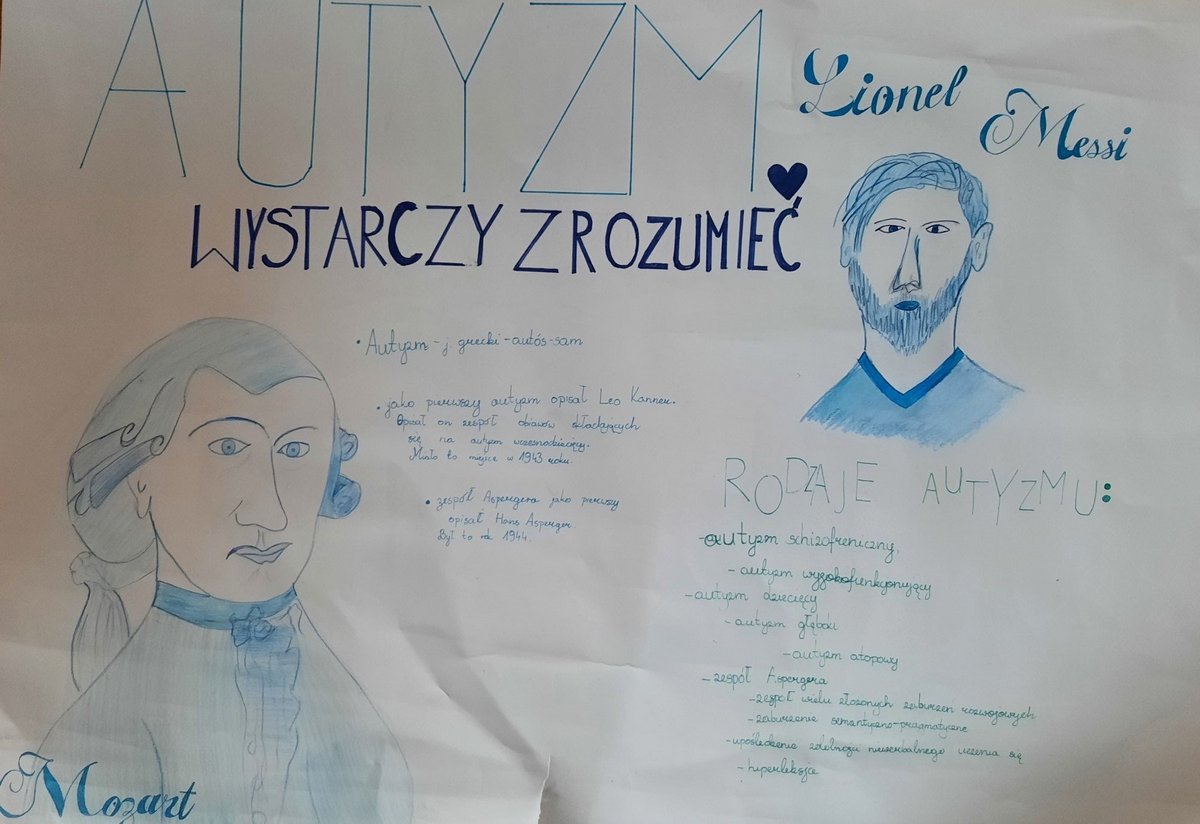 AUTYZM
WYSTARCZY ZROZUMIEĆ
Lionel
Messi
• Autyzm - j. grecki - autós - sam
• jako pierwszy autyzm opisał Leo Kanner.
Opisał on zespół obiawów składających
się na autyzm wczesnodziecięcy.
Miało to miejsce w 1943 roku.
• zespół Aspergera jako pierwszy
opisał Hans Asperger.
Był to rok 1944.
RODZAJE AUTYZMU:
- autyzm schizofreniczny,
- autyzm wysokofunkcjonujący
- autyzm dziecięcy
- autyzm głęboki
- autyzm atopowy
- zespół Aspergera
- zespół wielu złożonych zaburzeń rozwojowych
- zaburzenie semantyczno-pragmatyczne
- upośledzenie zdolności niewerbalnego uczenia się
- hiperleksja
Mozart